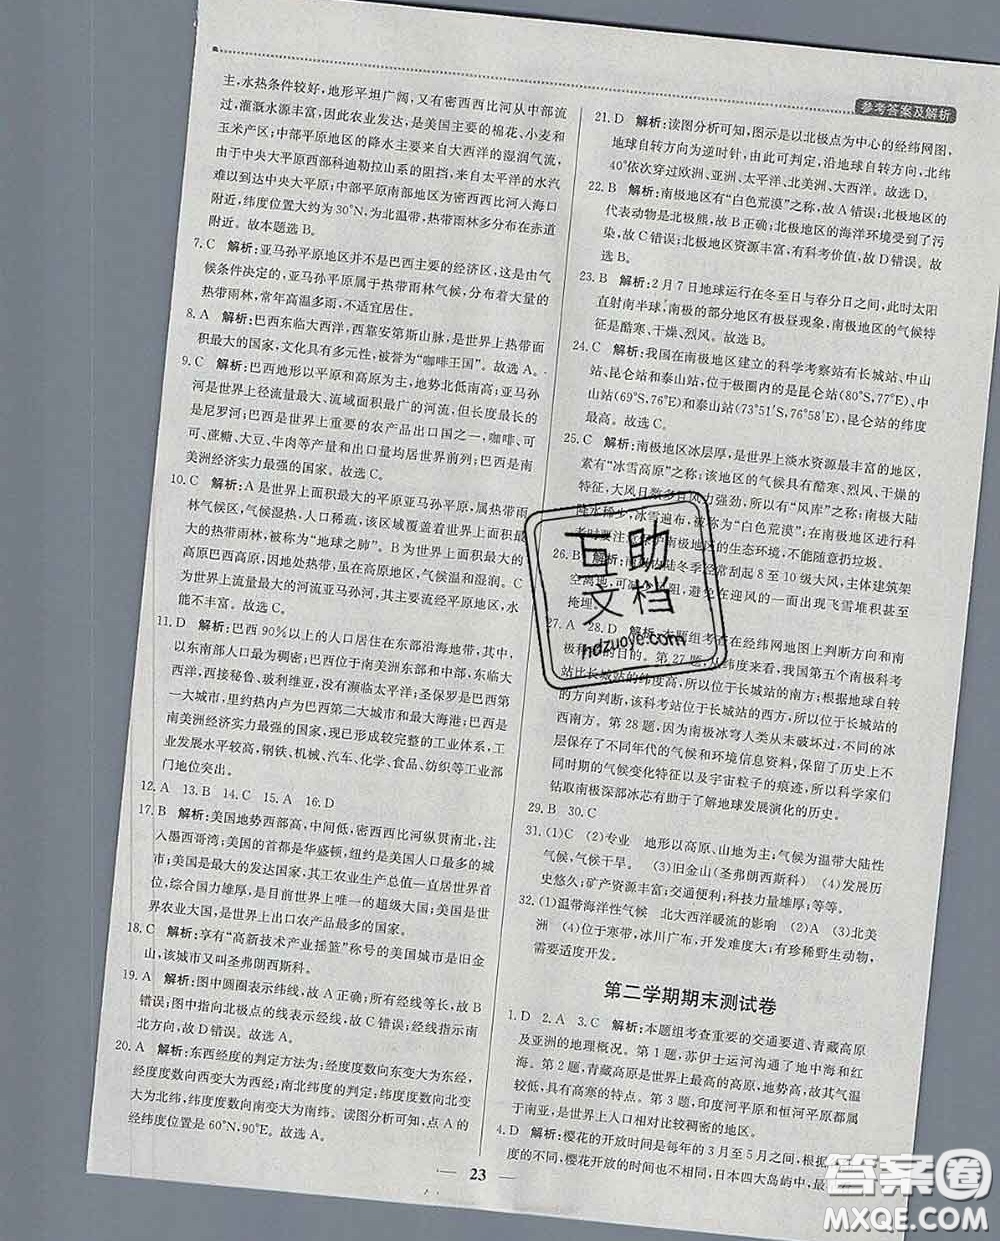 参考答案及解析
主,水热条件较好,地形平坦广阔,又有密西西比河从中部流
过,灌溉水源丰富,因此农业发达,是美国主要的棉花、小麦和
玉米产区;中部平原地区的降水主要来自大西洋的湿润气流,
由于中央大平原西部科迪勒拉山系的阻挡,来自太平洋的水汽
难以到达中央大平原;中部平原南部地区为密西西比河入海口
附近,纬度位置大约为30°N,为北温带,热带雨林多分布在赤道
附近。故本题选B。
7.C 解析:亚马孙平原地区并不是巴西主要的经济区,这是由气
候条件决定的,亚马孙平原属于热带雨林气候,分布着大量的
热带雨林,常年高温多雨,不适宜居住。
8.A 解析:巴西东临大西洋,西靠安第斯山脉,是世界上热带面
积最大的国家,文化具有多元性,被誉为“咖啡王国”。故选A。
9.C 解析:巴西地形以平原和高原为主,地势北低南高;亚马孙
河是世界上径流量最大、流域面积最广的河流,但长度最长的
是尼罗河;巴西是世界上重要的农产品出口国之一,咖啡、可
可、蔗糖、大豆、牛肉等产量和出口量均居世界前列;巴西是南
美洲经济实力最强的国家。故选C。
10.C 解析:A是世界上面积最大的平原亚马孙平原,属热带雨
林气候区,气候湿热,人口稀疏,该区域覆盖着世界上面积最
大的热带雨林,被称为“地球之肺”。B为世界上面积最大的
高原巴西高原,因地处热带,该地区气候温和而湿润。C为
世界上流量最大的河流亚马孙河,其主要流经平原地区,水
能不丰富。故选C。
11.D 解析:巴西90%以上的人口居住在东部沿海地带,其中
以东南部人口最为稠密;巴西位于南美洲东部和中部,东临大
西洋,西接秘鲁、玻利维亚,没有濒临太平洋;圣保罗是巴西第
一大城市,里约热内卢为巴西第二大城市和最大海港;巴西是
南美洲经济实力最强的国家,现已形成较完整的工业体系,工
业发展水平较高,钢铁、机械、汽车、化学、食品、纺织等工业部
门地位突出。
12.A 13.B 14.C 15.A 16.D
17.B 解析:美国地势西部高,中间低,密西西比河纵贯南北,注
入墨西哥湾;美国的首都是华盛顿,纽约是美国人口最多的城
市;美国是最大的发达国家,其工农业生产总值一直居世界首
位,综合国力雄厚,是目前世界上唯一的超级大国;美国是世
界农业大国,是世界上出口农产品最多的国家。
18.C 解析:享有“高新技术产业摇篮”称号的美国城市是旧金
山,该城市又叫圣弗朗西斯科。
19.A 解析:图中圆圈表示纬线,故A正确;所有经线等长,故B
错误;图中指向北极点的线表示经线,故C错误;经线指示南
北方向,故D错误。故选A。
20.A 解析:东西经度的判定方法为:经度度数向东变大为东经,
经度度数向西变大为西经;南北纬度的判定:纬度度数向北变
大为北纬,纬度度数向南变大为南纬。读图分析可知,点A的
经纬度位置是60°N,90°E。故选A。
21.D 解析:读图分析可知,图示是以北极点为中心的经纬网图,
地球自转方向为逆时针,由此可判定,沿地球自转方向,北纬
40°依次穿过欧洲、亚洲、太平洋、北美洲、大西洋。故选D。
22.B 解析:南极地区有“白色荒漠”之称,故A错误;北极地区的
代表动物是北极熊,故B正确;北极地区的海洋环境受到了污
染,故C错误;北极地区资源丰富,有科考价值,故D错误。故
选B。
23.B 解析:2月7日地球运行在冬至日与春分日之间,此时太阳
直射南半球,南极的部分地区有极昼现象,南极地区的气候特
征是酷寒、干燥、烈风。故选B。
24.C 解析:我国在南极地区建立的科学考察站有长城站、中山
站、昆仑站和泰山站,位于极圈内的是昆仑站(80°S,77°E)、中
山站(69°S,76°E)和泰山站(73°51′S,76°58′E),昆仑站的纬度
最高。故选C。
25.C 解析:南极地区冰层厚,是世界上淡水资源最丰富的地区,
素有“冰雪高原”之称;该地的气候具有酷寒、烈风、干燥的
特征,大风日数多且风力强劲,所以有“风库”之称;南极大陆
降水稀少,冰雪遍布,被称为“白色荒漠”;在南极地区进行科
考时要注意保护南极地区的生态环境,不能随意扔垃圾。
26.B 解析:南极大陆冬季经常刮起8至10级大风,主体建筑架
空离地,可减小风阻,避免在迎风的一面出现飞雪堆积甚至
掩埋。
27.A 28.D 解析:本题组考查在经纬网地图上判断方向和南
极科考的目的。第27题,从纬度来看,我国第五个南极科考
站比长城站的纬度高,所以位于长城站的南方;根据地球自转
的方向判断,该科考站位于长城站的西方,所以位于长城站的
西南方。第28题,因为南极冰穹人类从未到达,南极厚厚的冰
层保存了不同年代的气候和环境信息资料,可以分析出地球
不同时期的气候变化特征以及宇宙粒子的痕迹,所以科学家们
钻取南极深部冰芯有助于了解地球发展演化的历史。
29.B 30.B
31.(1)C (2)专业 地形以高原、山地为主;气候为温带大陆性
气候,气候干旱。 (3)旧金山(圣弗朗西斯科) (4)发展历
史悠久;矿产资源丰富;交通便利;科技力量雄厚;等等。
32.(1)温带海洋性气候 北大西洋暖流的影响 (2)A (3)北美
洲 (4)位于寒带,冰川广布,开发难度大;有珍稀野生动物,
需要适度开发。
第二学期期末测试卷
1.D 2.A 3.C 解析:本题组考查重要的交通要道、青藏高原
及亚洲的地理概况。第1题,苏伊士运河沟通了地中海和红
海。第2题,青藏高原是世界上最高的高原,地势高,故其气温
较低,具有高寒的特点。第3题,印度河平原和恒河平原都属
于南亚,是世界上人口相对比较稠密的地区。
4.D 解析:樱花的开放时间是每年的3月至5月之间,根据
度的不同,樱花开放的时间也不相同,日本四大岛屿中,最
23
互助文档
hdzuoye.com
答案圈
MXQE.COM